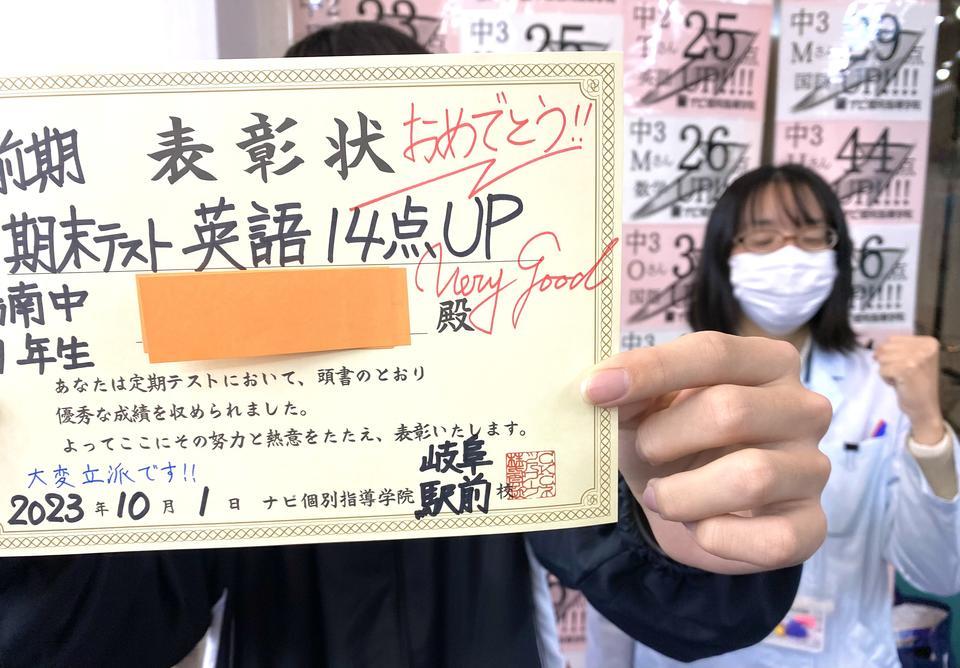 前期 表彰状 おめでとう!!
期末テスト 英語 14点UP
Very Good
南中
1年生
殿
あなたは定期テストにおいて、頭書のとおり
優秀な成績を収められました。
よってここにその努力と熱意をたたえ、表彰いたします。
大変立派です!!
2023年10月1日 ナビ個別指導学院 岐阜駅前校
中3
25
中2
Tさん
25点
英語 UP!!!
中3
Mさん
国語 UP!!!
中3
Mさん
26点
数学 UP!!!
中3
44点
UP!!!
中3
Oさん
国語
6点
中3